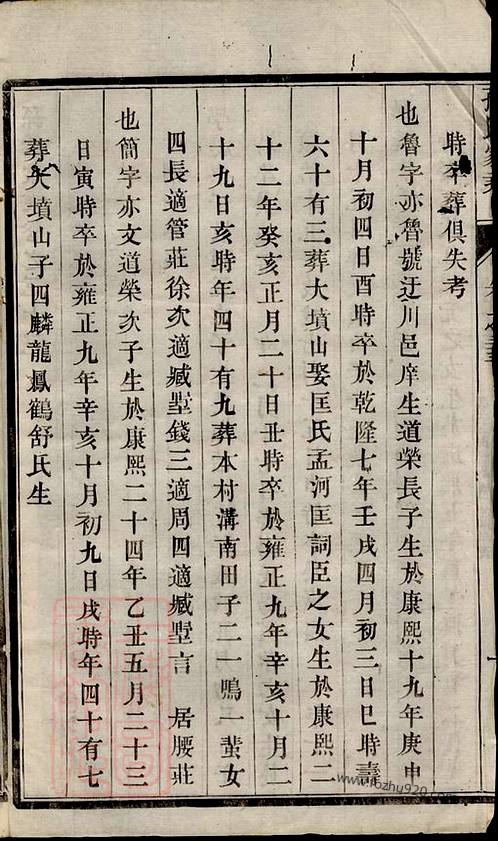 時卒葬俱失考
也魯字亦魯號迂川邑庠生道榮長子生於康熙十九年庚申
十月初四日酉時卒於乾隆七年壬戌四月初三日巳時壽
六十有三葬大墳山娶匡氏孟河匡詞臣之女生於康熙二
十二年癸亥正月二十日丑時卒於雍正九年辛亥十月二
十九日亥時年四十有九葬本村溝南田子二一鳴一蜚女
四長適管莊徐次適臧墅錢三適周四適臧墅言　居腰莊
也簡字亦文道榮次子生於康熙二十四年乙丑五月二十三
日寅時卒於雍正九年辛亥十月初九日戌時年四十有七
葬大墳山子四麟龍鳳鶴舒氏生